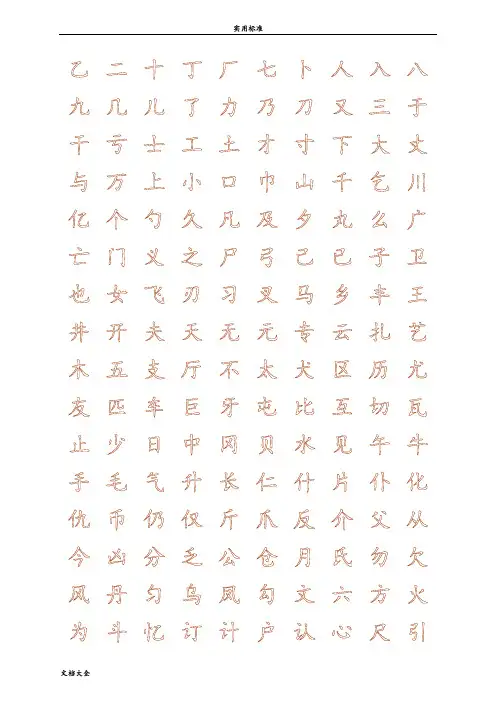 实用标准
乙 二 十 丁 厂 七 卜 人 入 八
九 几 儿 了 力 乃 刀 又 三 于
干 亏 士 工 土 才 寸 下 大 丈
与 万 上 小 口 巾 山 千 乞 川
亿 个 勺 久 凡 及 夕 丸 么 广
亡 门 义 之 尸 弓 己 已 子 卫
也 女 飞 刃 习 叉 马 乡 丰 王
井 开 夫 天 无 元 专 云 扎 艺
木 五 支 厅 不 太 犬 区 历 尤
友 匹 车 巨 牙 屯 比 互 切 瓦
止 少 日 中 冈 贝 水 见 午 牛
手 毛 气 升 长 仁 什 片 仆 化
仇 币 仍 仅 斤 爪 反 介 父 从
今 凶 分 乏 公 仓 月 氏 勿 欠
风 丹 匀 乌 凤 勾 文 六 方 火
为 斗 忆 订 计 户 认 心 尺 引
文档大全